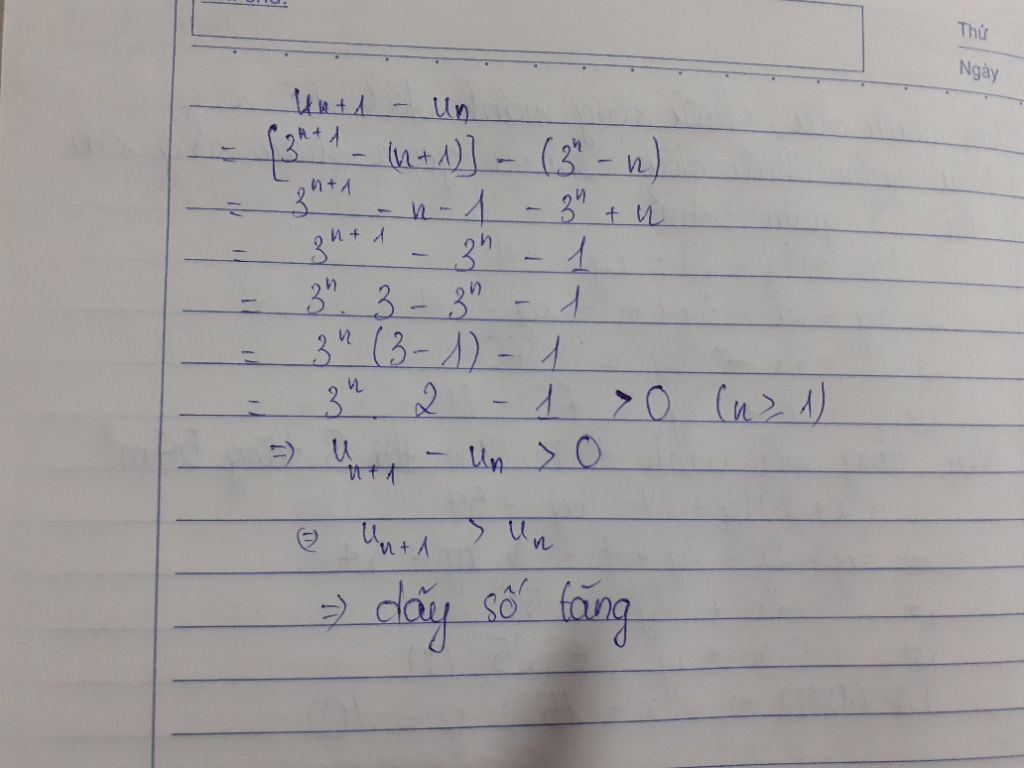 Thứ
Ngày
u_{n+1} - u_n
= [3^{n+1} - (n+1)] - (3^n - n)
= 3^{n+1} - n - 1 - 3^n + n
= 3^{n+1} - 3^n - 1
= 3^n . 3 - 3^n - 1
= 3^n (3 - 1) - 1
= 3^n . 2 - 1 > 0 (n ≥ 1)
⇒ u_{n+1} - u_n > 0
⇔ u_{n+1} > u_n
⇒ dãy số tăng